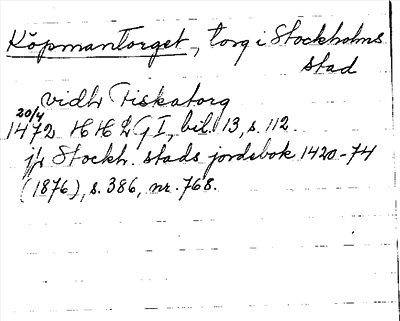 Köpmantorget, torg i Stockholms
stad
vidh Fiskatorg
20/4
1472 HHLGI, bil. 13, s. 112.
jfr Stockh. stads jordebok 1420-74
(1876), s. 386, nr. 768.